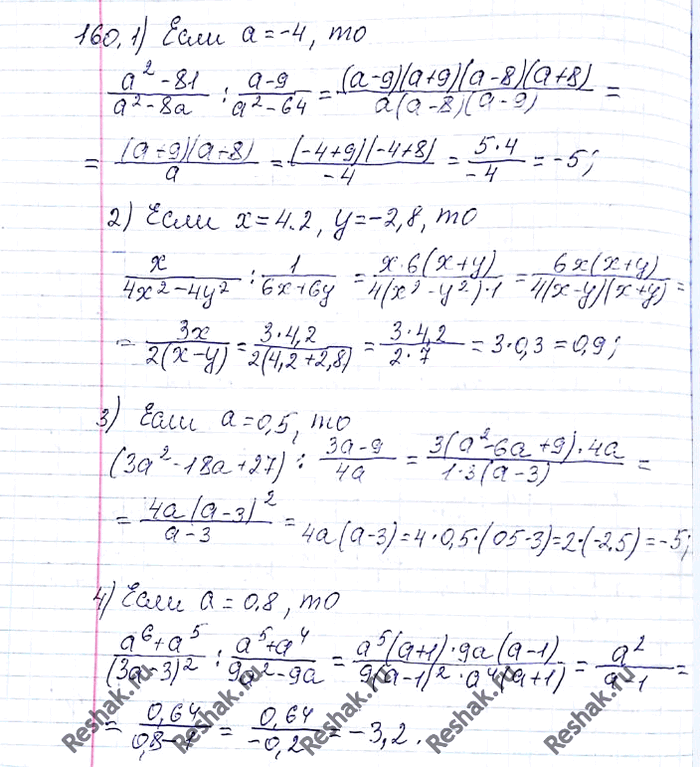 160.1) Если a=-4, то
(a²-81)/(a²-8a) : (a-9)/(a²-64) = ((a-9)(a+9)(a-8)(a+8))/(a(a-8)(a-9)) =
= ((a+9)(a+8))/a = ((-4+9)(-4+8))/-4 = (5·4)/-4 = -5;
2) Если x=4.2, y=-2,8, то
x/(4x²-4y²) : 1/(6x+6y) = (x·6(x+y))/(4(x²-y²)·1) = (6x(x+y))/(4(x-y)(x+y)) =
= 3x/(2(x-y)) = (3·4,2)/(2(4,2+2,8)) = (3·4,2)/(2·7) = 3·0,3 = 0,9;
3) Если a=0,5, то
(3a²-18a+27) : (3a-9)/4a = (3(a²-6a+9)·4a)/(1·3(a-3)) =
= (4a(a-3)²)/(a-3) = 4a(a-3)=4·0,5·(05-3)=2·(-2.5)=-5;
4) Если a=0.8, то
(a⁶+a⁵)/(3a-3)² : (a⁵+a⁴)/(9a²-9a) = (a⁵(a+1)·9a(a-1))/(9(a-1)²·a⁴(a+1)) = a²/(a-1) =
= 0,64/(0,8-1) = 0,64/-0,2 = -3,2.
Reshak.ru Reshak.ru Reshak.ru Reshak.ru Reshak.ru